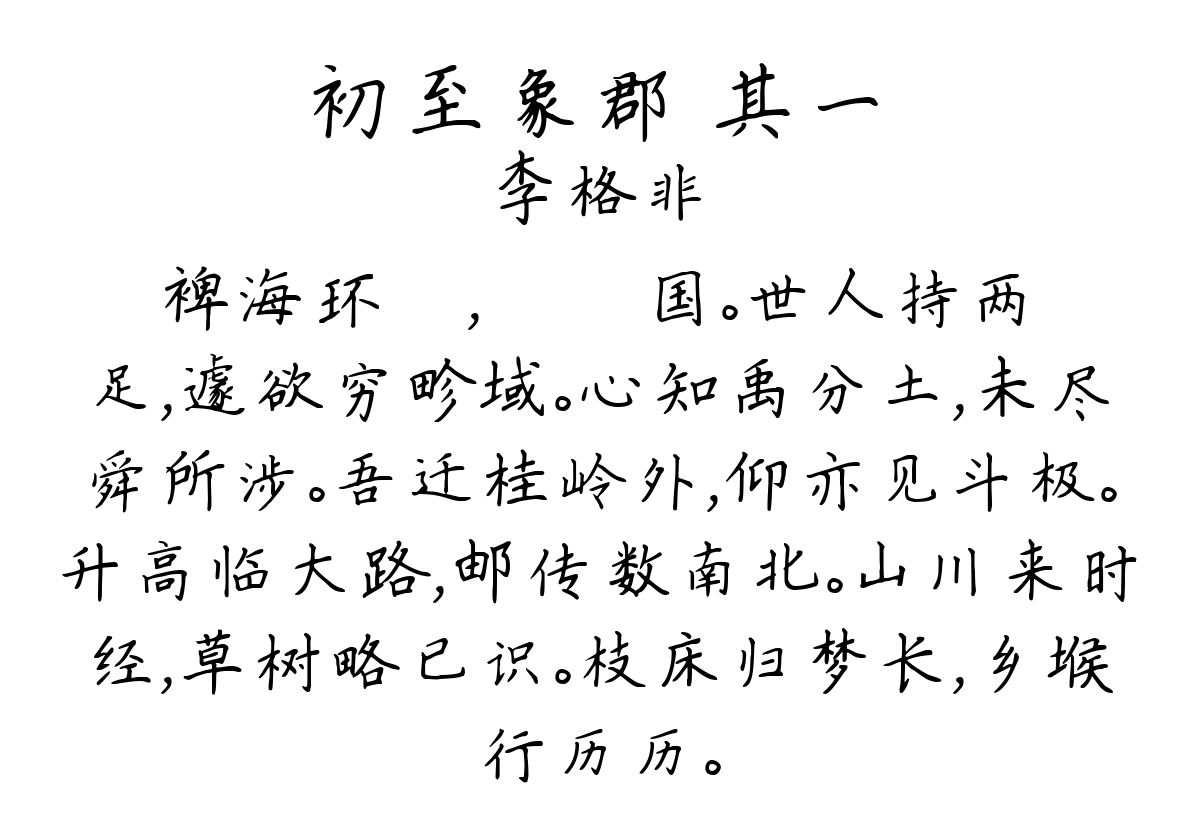 初至象郡 其一
李格非
裨海环 , 国。世人持两
足,遽欲穷畛域。心知禹分土,未尽
舜所涉。吾迁桂岭外,仰亦见斗极。
升高临大路,邮传数南北。山川来时
经,草树略已识。枝床归梦长,乡堠
行历历。